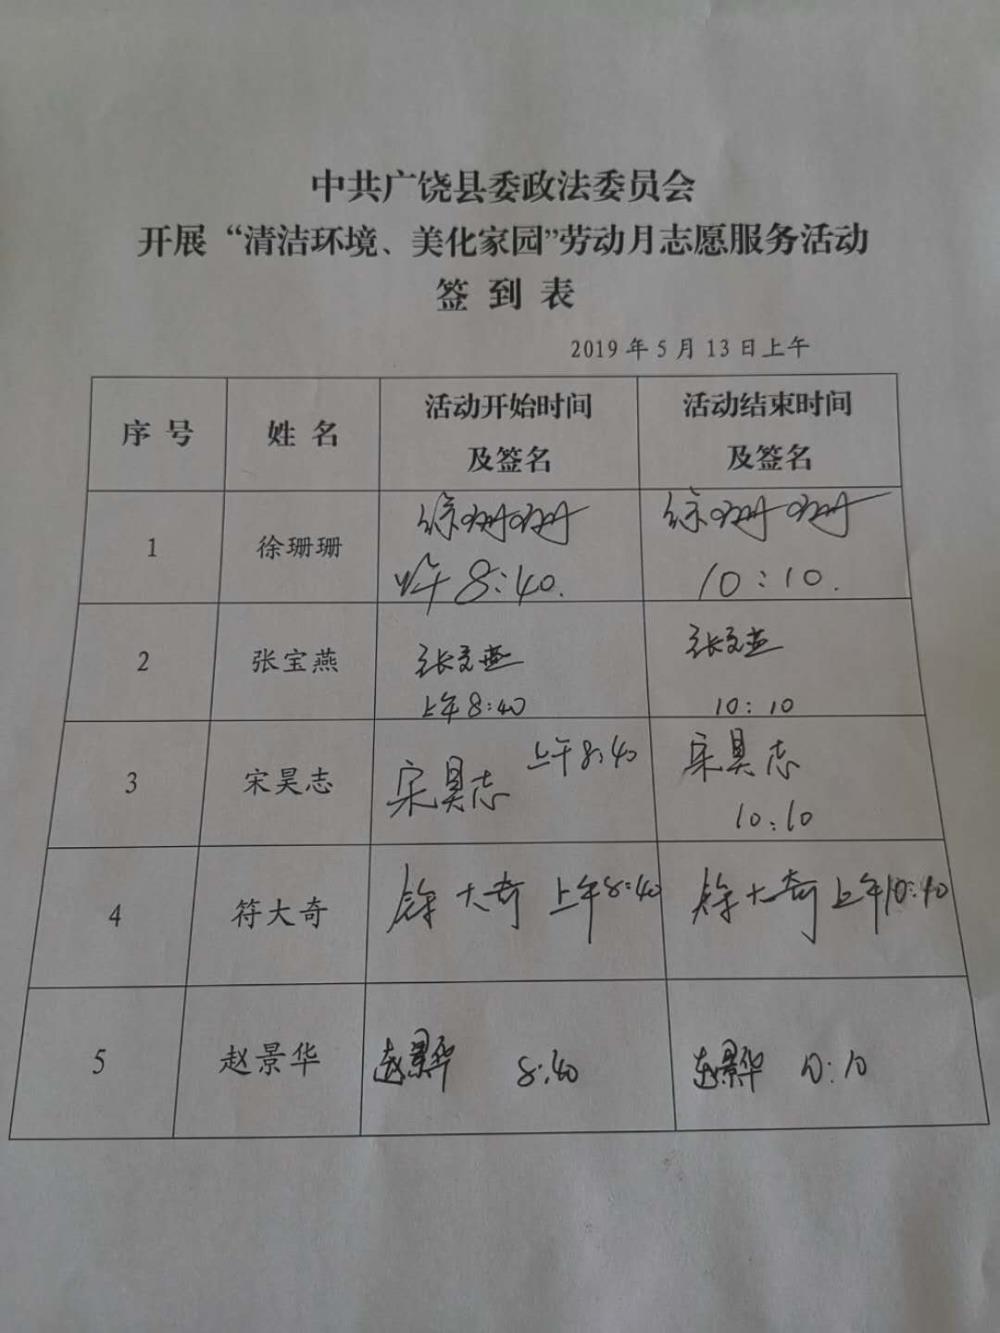 中共广饶县委政法委员会
开展“清洁环境、美化家园”劳动月志愿服务活动
签到表
2019年5月13日上午
序号 姓名 活动开始时间 活动结束时间
及签名 及签名
1 徐珊珊 徐珊珊 徐珊珊
8:40. 10:10.
2 张宝燕 张宝燕 张宝燕
上午8:40 10:10
3 宋昊志 宋昊志 上午8:40 宋昊志
10:10
4 符大奇 符大奇 上午8:40 符大奇 上午10:40
5 赵景华 赵景华 8:40 赵景华 10:10